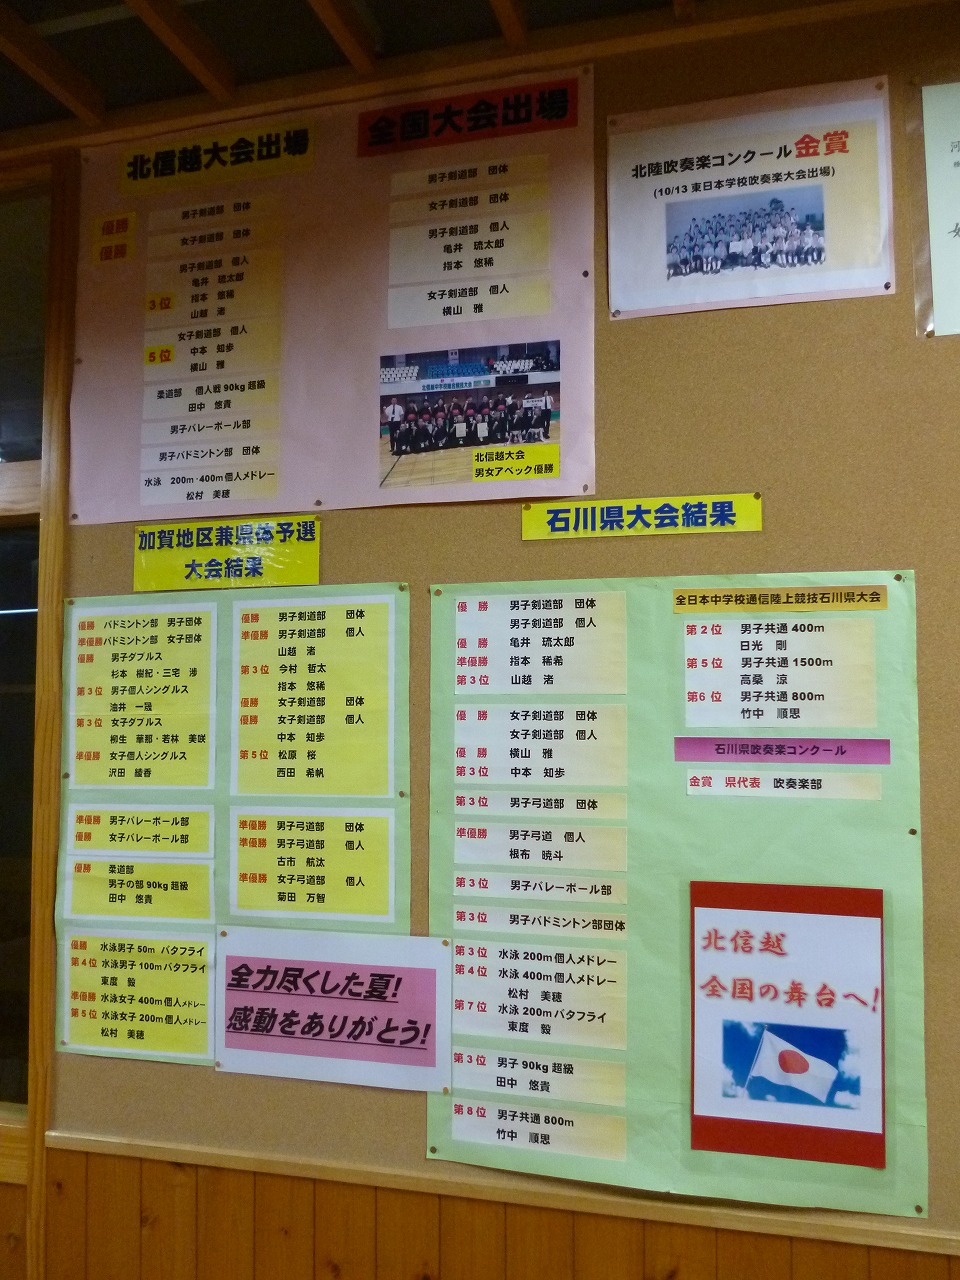 北信越大会出場
優勝 男子剣道部 団体
優勝 女子剣道部 団体
男子剣道部 個人
亀井 琉太郎
3位 指本 悠稀
山越 渚
女子剣道部 個人
5位 中本 知歩
横山 雅
柔道部 個人戦90kg超級
田中 悠貴
男子バレーボール部
男子バドミントン部 団体
水泳 200m・400m個人メドレー
松村 美穂
全国大会出場
男子剣道部 団体
女子剣道部 団体
男子剣道部 個人
亀井 琉太郎
指本 悠稀
女子剣道部 個人
横山 雅
北信越大会
男女アベック優勝
北陸吹奏楽コンクール金賞
(10/13 東日本学校吹奏楽大会出場)
加賀地区兼県体予選
大会結果
優勝 バドミントン部 男子団体
準優勝 バドミントン部 女子団体
優勝 男子ダブルス
杉本 樹紀・三宅 渉
第3位 男子個人シングルス
油井 一晟
第3位 女子ダブルス
柳生 華那・若林 美咲
準優勝 女子個人シングルス
沢田 綾香
準優勝 男子バレーボール部
優勝 女子バレーボール部
優勝 柔道部
男子の部90kg超級
田中 悠貴
優勝 水泳男子50m バタフライ
第4位 水泳男子100mバタフライ
東度 毅
準優勝 水泳女子400m個人メドレー
第5位 水泳女子200m個人メドレー
松村 美穂
優勝 男子剣道部 団体
準優勝 男子剣道部 個人
山越 渚
第3位 今村 哲太
指本 悠稀
優勝 女子剣道部 団体
優勝 女子剣道部 個人
中本 知歩
第5位 松原 桜
西田 希帆
準優勝 男子弓道部 団体
準優勝 男子弓道部 個人
古市 航汰
準優勝 女子弓道部 個人
菊田 万智
全力尽くした夏!
感動をありがとう!
石川県大会結果
優勝 男子剣道部 団体
男子剣道部 個人
優勝 亀井 琉太郎
準優勝 指本 稀希
第3位 山越 渚
優勝 女子剣道部 団体
女子剣道部 個人
優勝 横山 雅
第3位 中本 知歩
第3位 男子弓道部 団体
準優勝 男子弓道 個人
根布 暁斗
第3位 男子バレーボール部
第3位 男子バドミントン部団体
第3位 水泳200m個人メドレー
第4位 水泳400m個人メドレー
松村 美穂
第7位 水泳200mバタフライ
東度 毅
第3位 男子90kg超級
田中 悠貴
第8位 男子共通800m
竹中 順思
全日本中学校通信陸上競技石川県大会
第2位 男子共通400m
日光 剛
第5位 男子共通1500m
高桑 涼
第6位 男子共通800m
竹中 順思
石川県吹奏楽コンクール
金賞 県代表 吹奏楽部
北信越
全国の舞台へ!